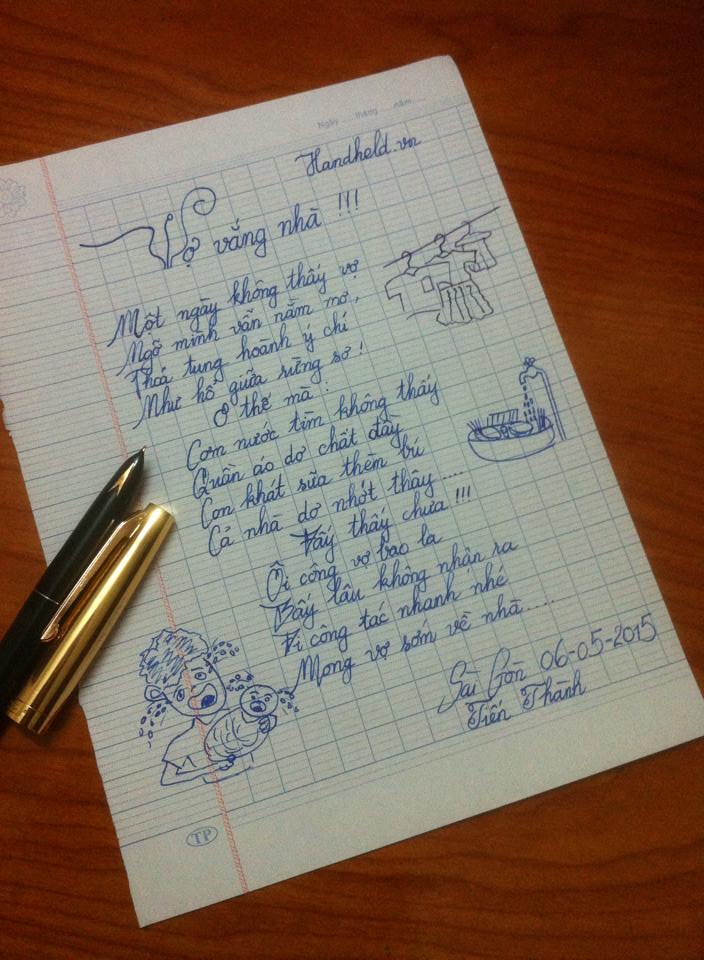 Ngày tháng năm
Handheld.vn
Vợ vắng nhà !!!
Một ngày không thấy vợ
Ngỡ mình vẫn nằm mơ,
Thoả tung hoành ý chí
Như hổ giữa rừng sơ !
Ơ thế mà :
Cơm nước tìm không thấy
Quần áo dơ chất đầy
Con khát sữa thèm bú
Cả nhà dơ nhớt thây....
Đấy thấy chưa !!!
Ôi công vợ bao la
Bấy lâu không nhận ra
Đi công tác nhanh nhé
Mong vợ sớm về nhà....
Sài Gòn 06-05-2015
Tiến Thành
TP